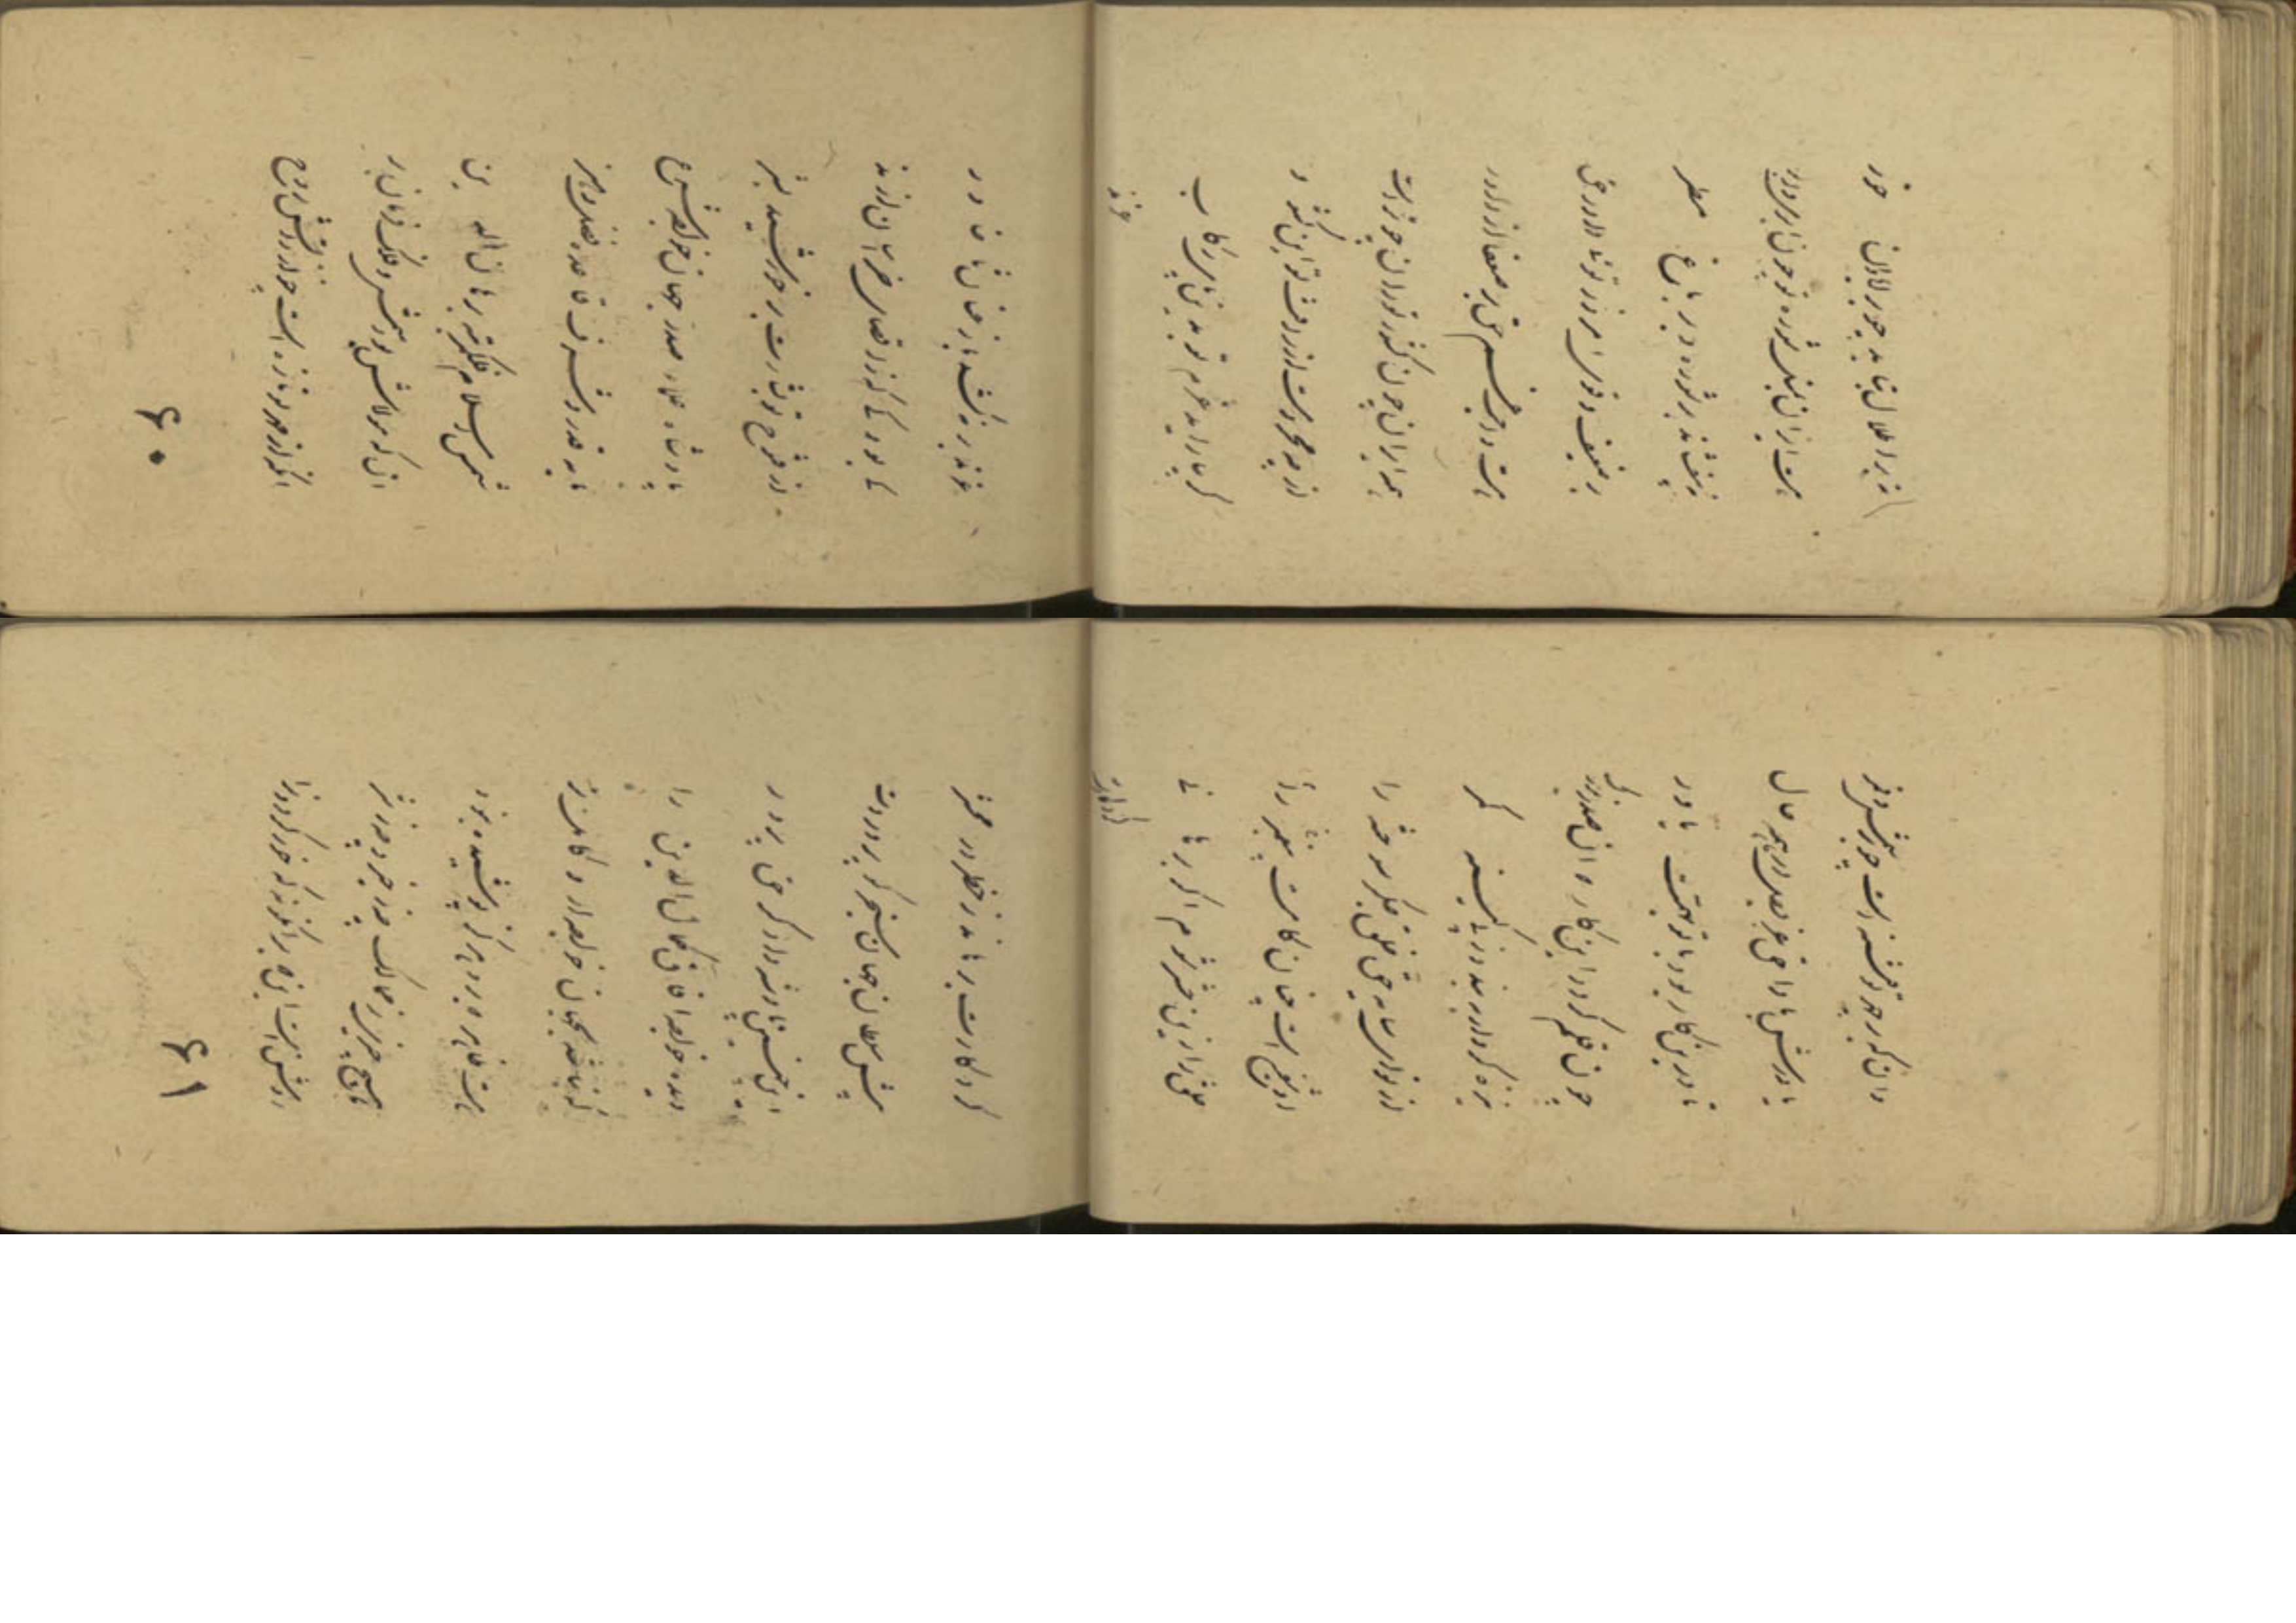 نه بر اطلال بتابد چو بر آبادان خور
هست ایران بمثل شوره تو چون ابر و نه ابر
هم برافشاند بر شوره چو بر باغ مطر
بر ضعیف و قوی امروز توئی داور حق
هست واجب غم حق ضعفا بر داور
همه ایران چون کشور توران چو تراست
از چه محرومست از رافت تو این کشور
گر نیاراید عزم تو بدین پای رکاب
غز مد
غز مدبر نکشد باز عنان تا خاور
کی بود کی که ز اقصای خراسان آرند
از فتوح تو بشارت بر خورشید بشر
پادشاه علما صدر جهان خواجه شرع
مایه فخر و شرف قاعده فضل و هنر
شمس اسلام فلک مرتبه برهان الدین
آن که مولاش بود شمس و فلک فرمان بر
آنکه از مهر تو تازه است چو از دانش روح
۶۰
وان که بر چهر تو فتنه است چو بر شمس قمر
یاورش بادا حق عز و جل در همه حال
تا درین کار بود با تو بهمت یاور
چون قلم گردد این کار گر آن صدر بزرگ
نیزه کردار ببندد ز پی کینه کمر
از تو ای سایه حق خلق جگر سوخته را
او شفیع است چنان کامت پیغمبر را
خلق را زین حشر شوم اگر برهانی
کردگارت
کردگارت برهاند ز خطر در محشر
پیش سلطان جهان سنجر کو پروردت
ای چنین پادشه دادگر حق پرور
دیده خواجه آفاق کمال الدین را
که نباشد بجهان خواجه ازو کاملتر
هست ظاهر که برو هرگز پوشیده نبود
هیچ چیزی ز ممالک چه ز خیر و چه ز شر
روشن است این که بر آنگونه که خور گردون را
۶۱